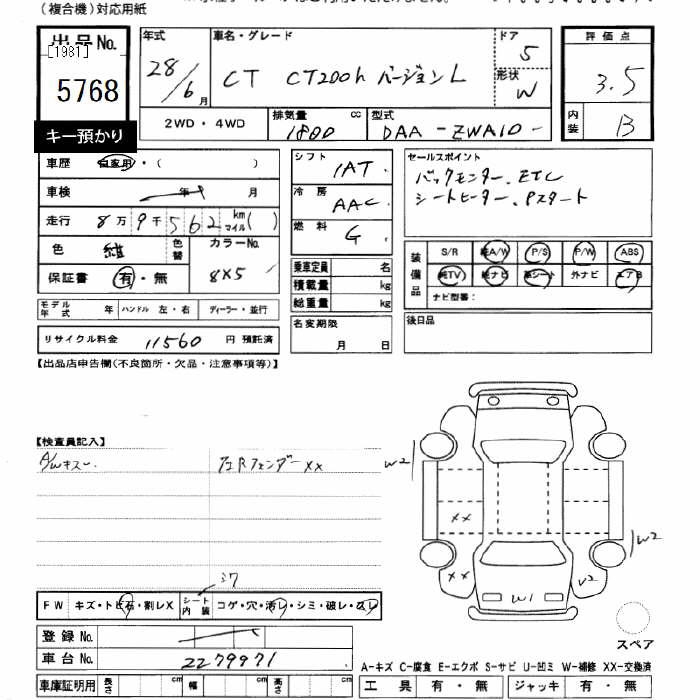 (複合機)対応用紙
出品No.
[1981]
5768
キー預かり
年式
28/6月
車名・グレード
CT CT200h バージョンL
ドア
5
形状
W
評価点
3.5
内装
B
2WD・4WD
排気量
1800 cc
型式
DAA-ZWA10-
車歴 自家用・( )
車検 年 月
走行 8万9千562 km マイル( )
色 紺
色替
カラーNo.
8X5
保証書 有・無
モデル年式 年 ハンドル 左・右 ディーラー・並行
リサイクル料金 11560 円 預託済
シフト
IAT
冷房
AAC
燃料
G
乗車定員 名
積載量 kg
総重量 kg
名変期限
月 日
セールスポイント
バックモニター、ETC
シートヒーター、Pスタート
装備品
S/R 純A/W P/S P/W ABS
純TV 純ナビ 革シート 外ナビ エアB
ナビ型番:
後日品
【出品店申告欄(不良箇所・欠品・注意事項等)】
【検査員記入】
A/Wキズ
フェRフェンダーXX
W2
XX
XX
W2
V2
W1
スペア
シワ
FW キズ・トビ石・割レX
シート内装
コゲ・穴・汚レ・シミ・破レ・スレ
登録No.
車台No.
2279971
車庫証明用 長さ cm 幅 cm 高さ cm
A-キズ C-腐食 E-エクボ S-サビ U-凹ミ W-補修 XX-交換済
工具 有・無 ジャッキ 有・無